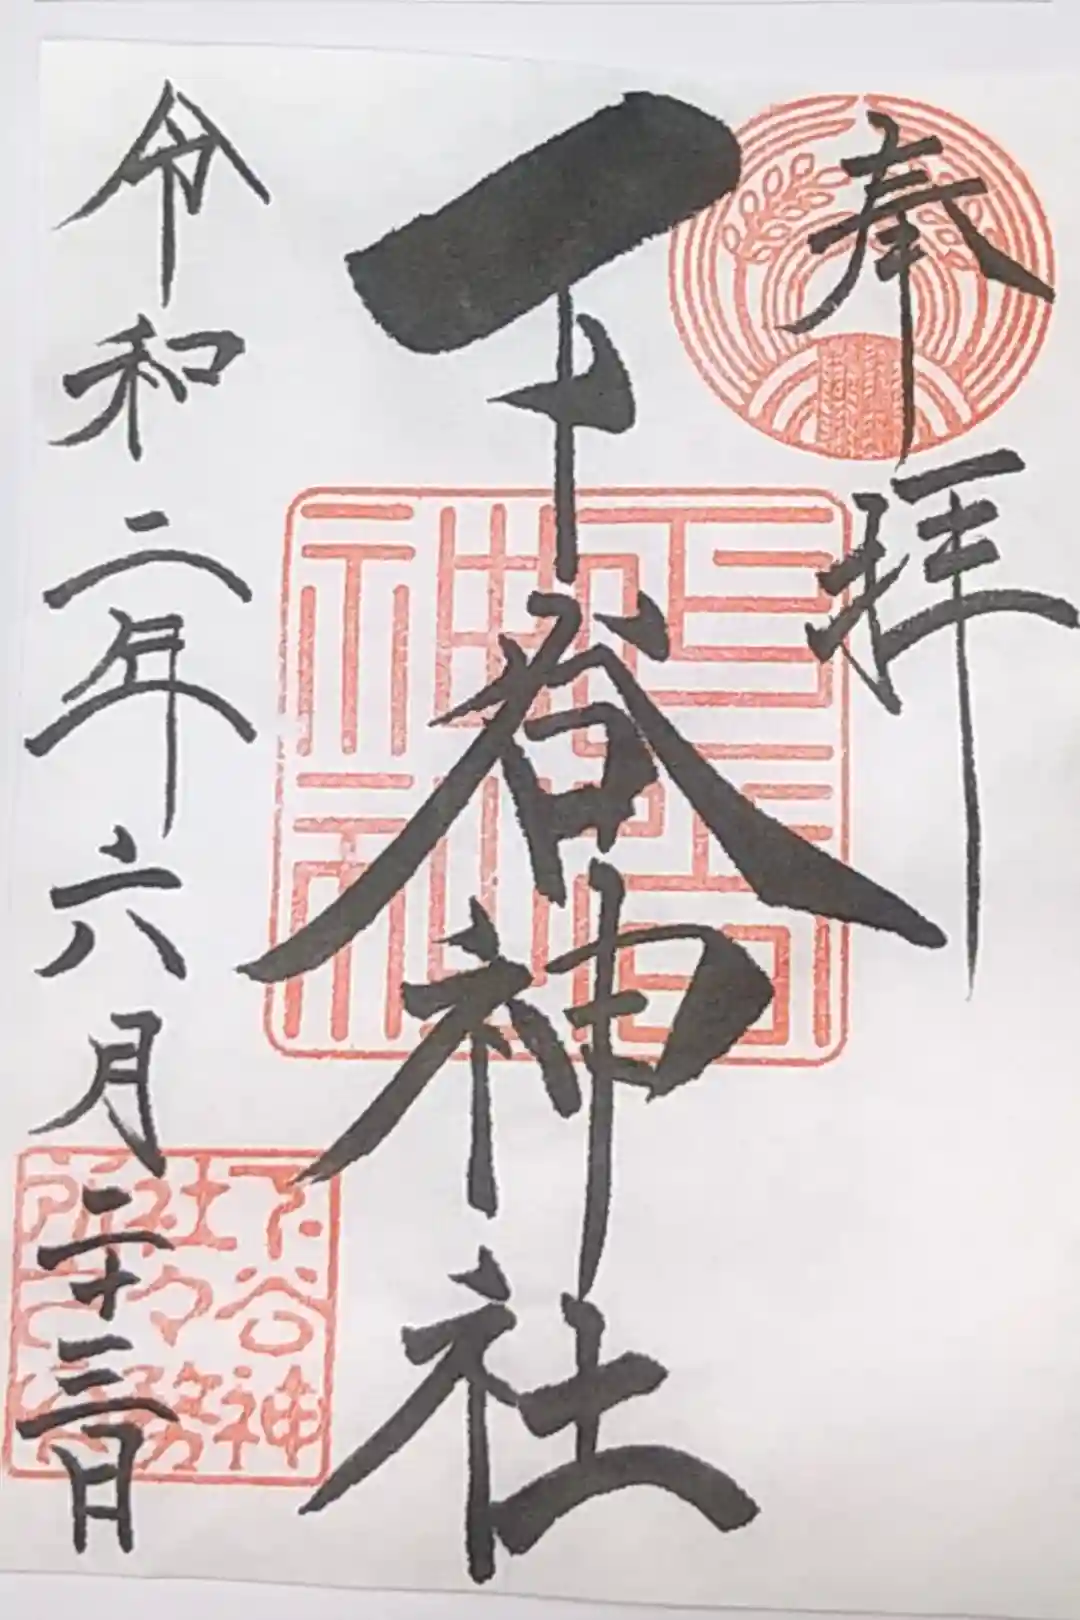 奉拝
下谷神社
令和二年六月二十三日
下谷神
社々務
所之印